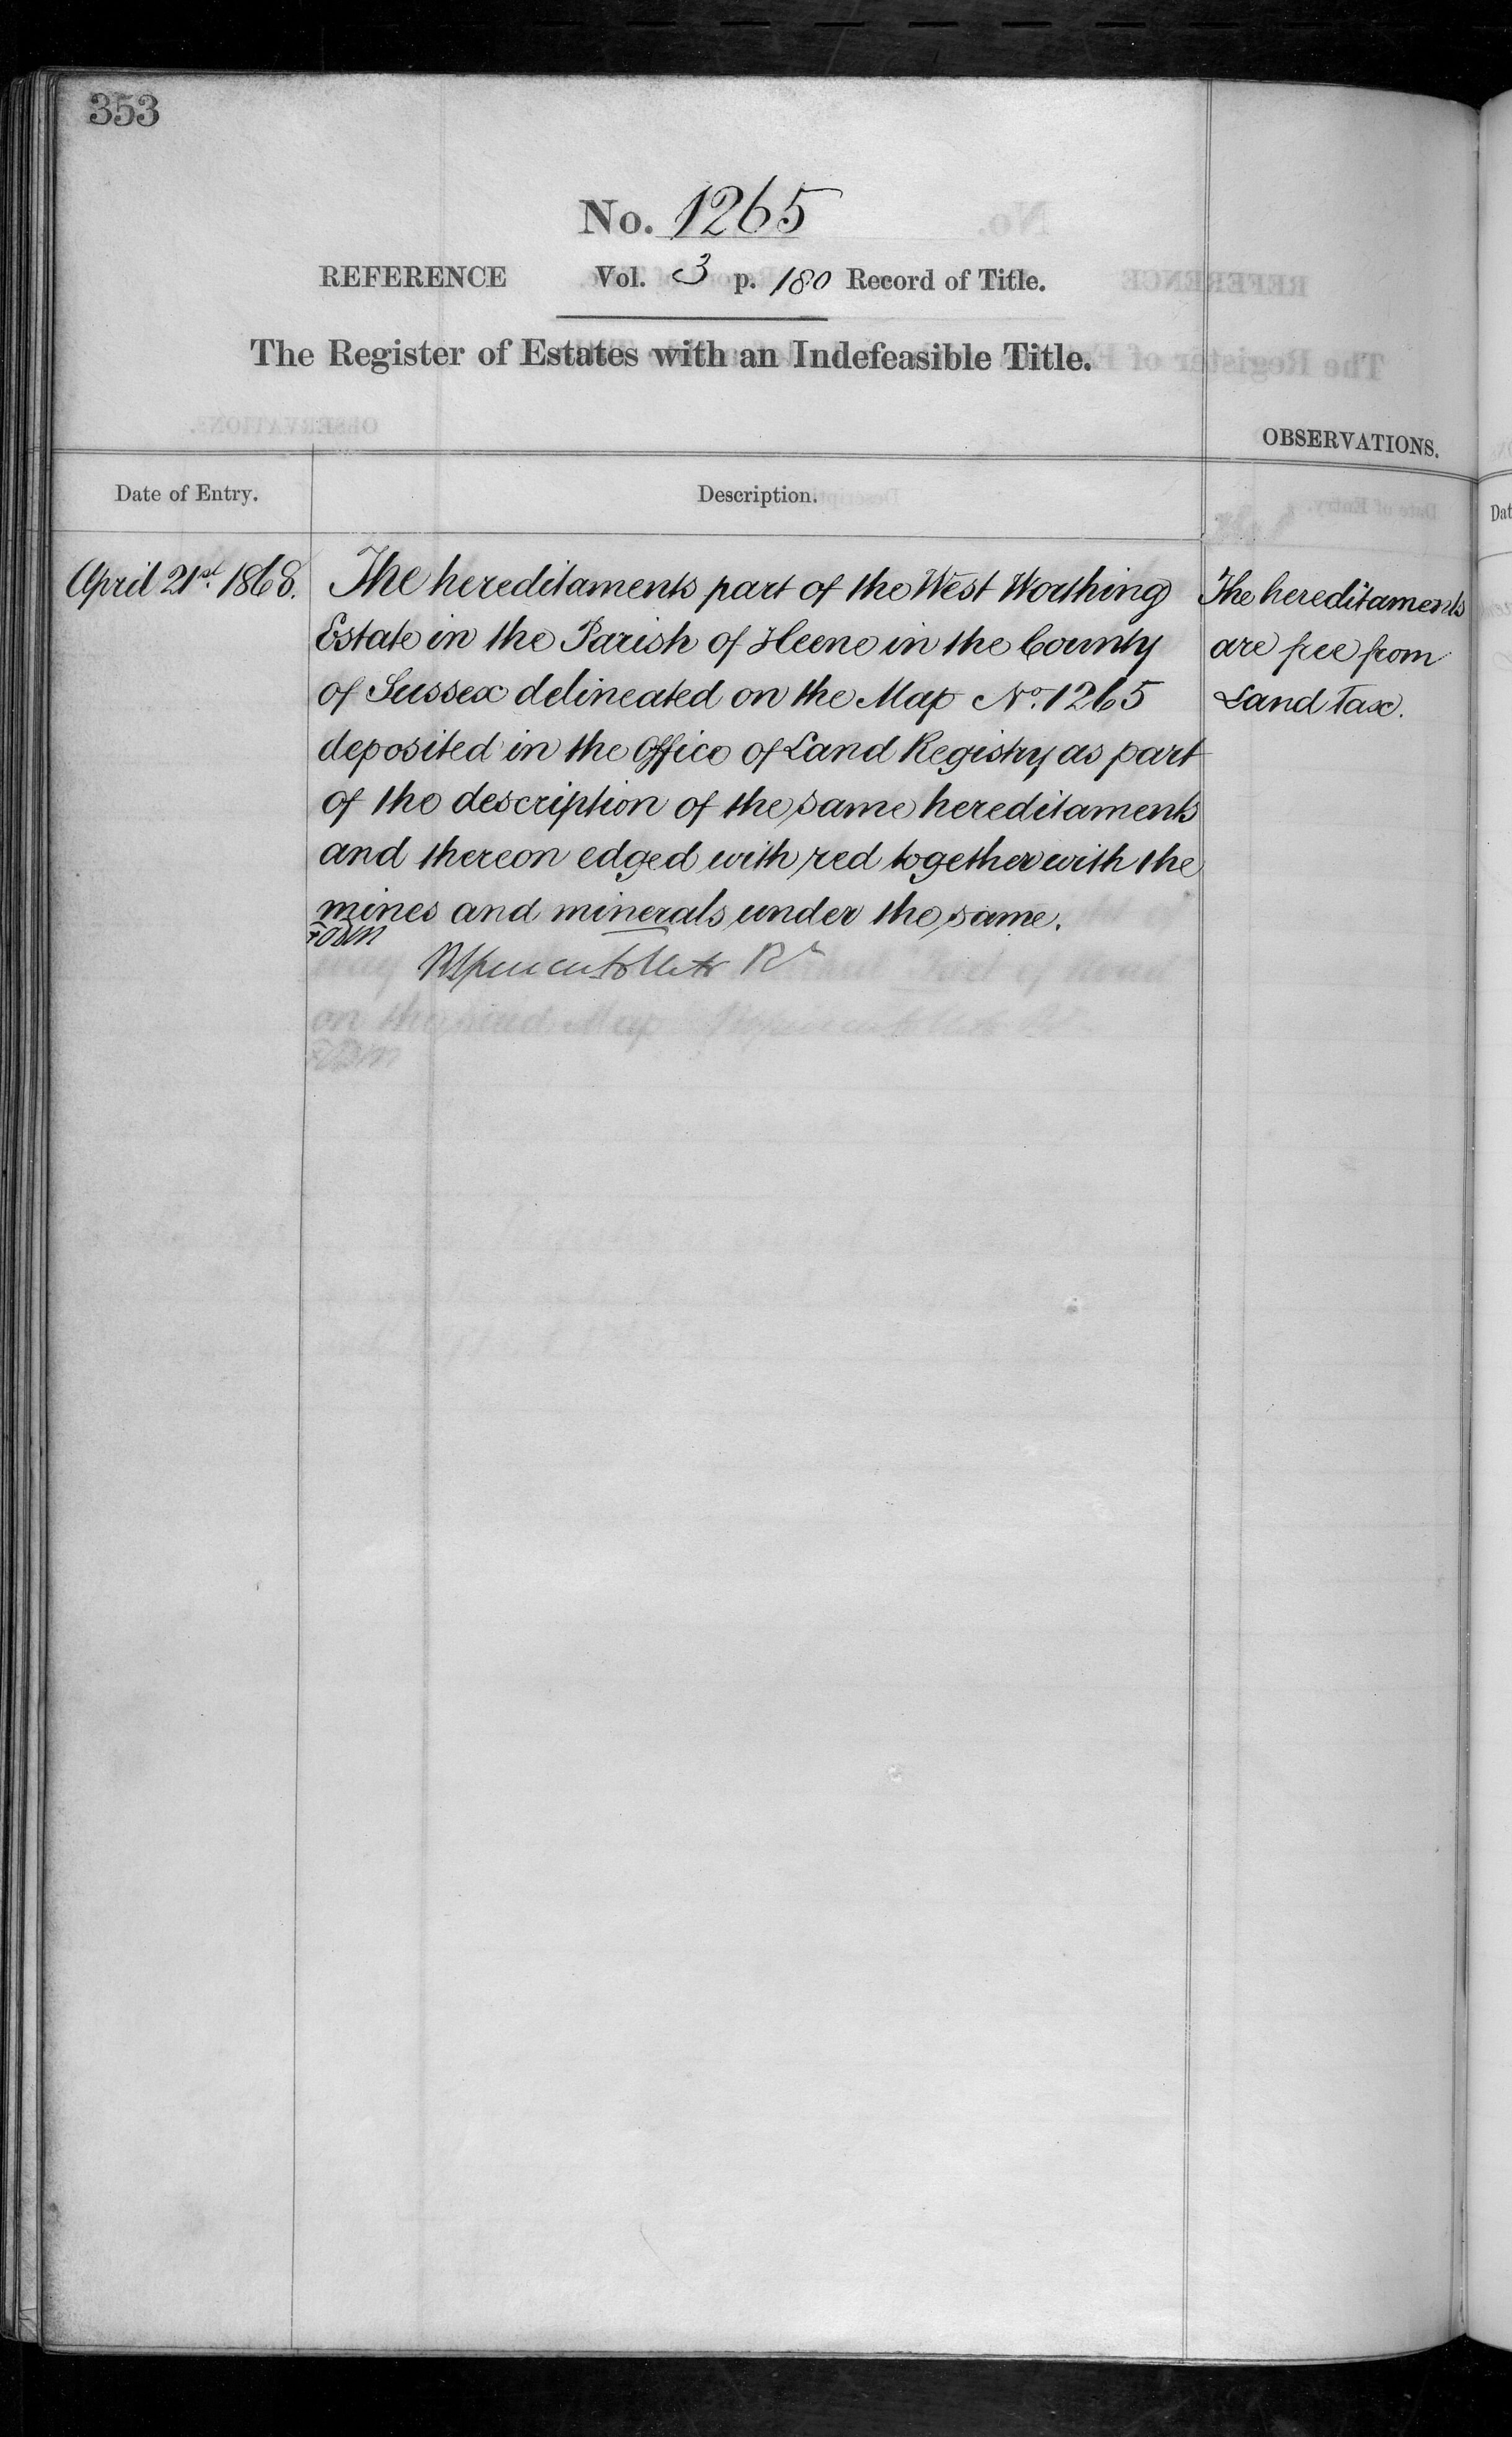 353
No. 1265
REFERENCE Vol. 3 p. 180 Record of Title.
The Register of Estates with an Indefeasible Title.
OBSERVATIONS.
Date of Entry.
Description.
April 21st. 1868.
The hereditaments part of the West Worthing
Estate in the Parish of Heene in the County
of Sussex delineated on the Map No. 1265
deposited in the Office of Land Registry as part
of the description of the same hereditaments
and thereon edged with red together with the
mines and minerals under the same.
The hereditaments
are free from
Land Tax.